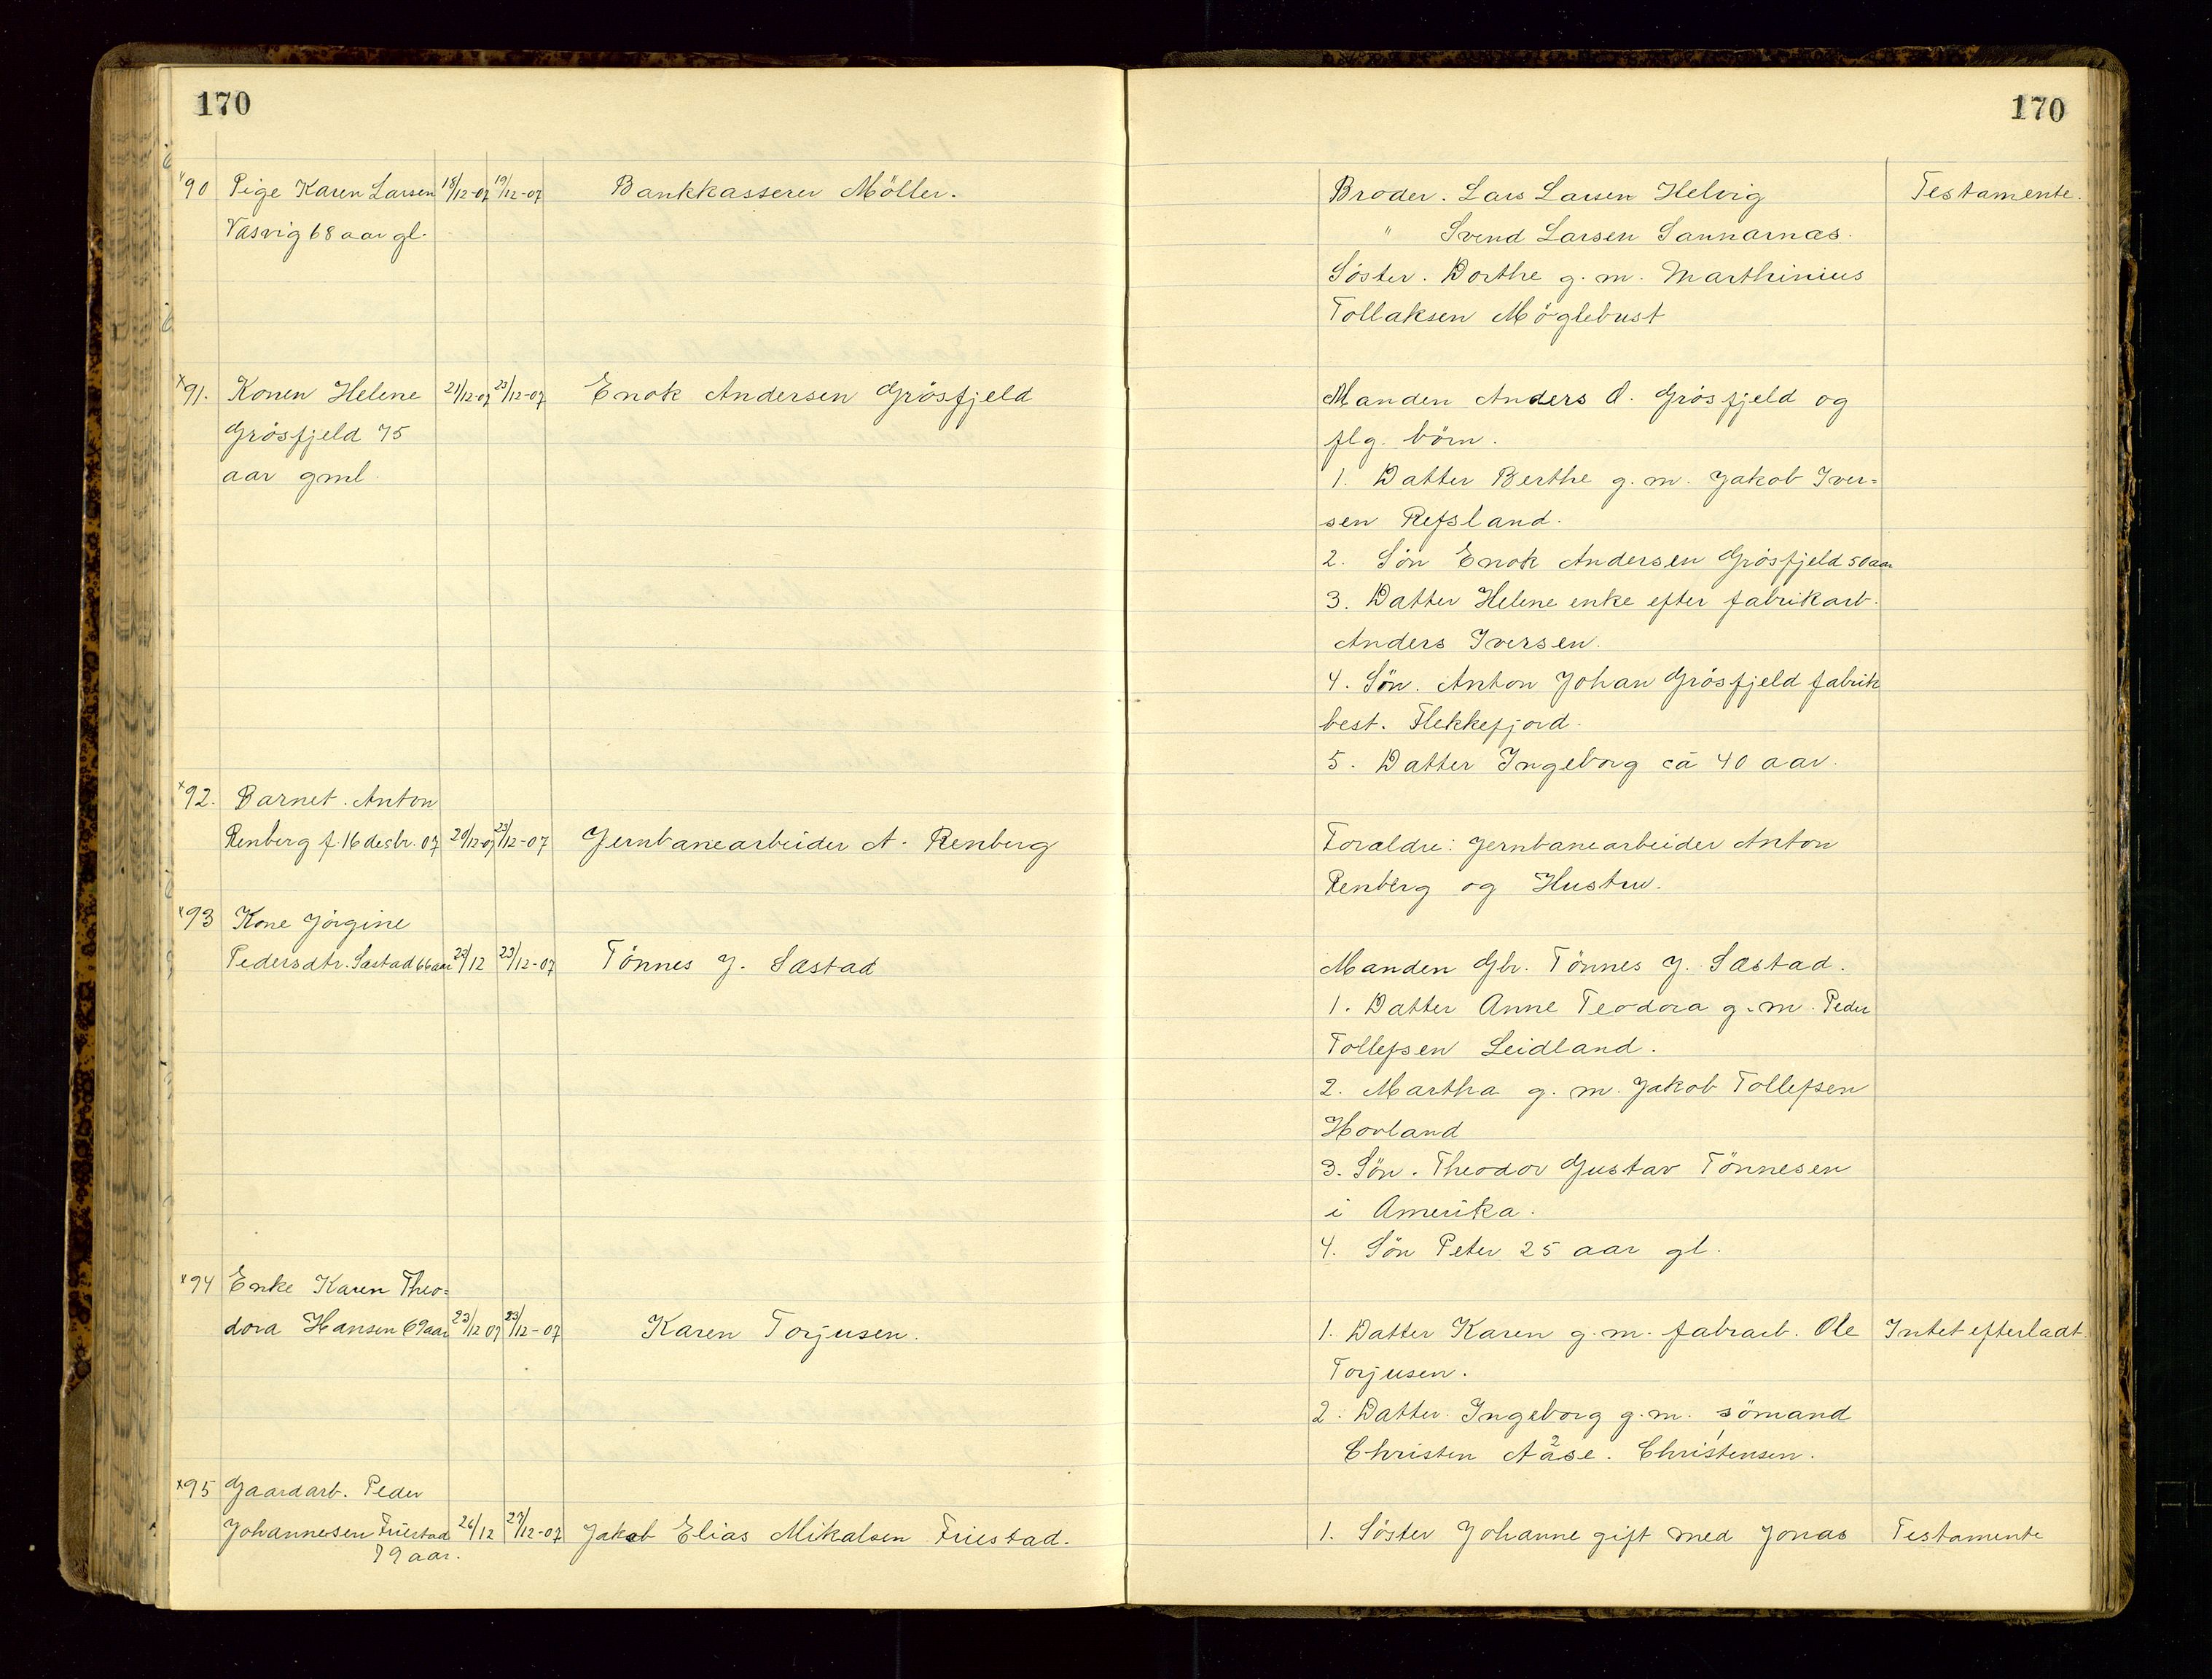 170
170
"90 Pige Karen Larsen 18/12-07 19/12-07 Bankkasserer Möller. Broder. Lars Larsen Helvig Testamente.
Vasvig 68 aar gl. " Svend Larsen Sannarnæs.
Söster. Dorthe g. m. Marthinius
Tollaksen Möglebust
x91. Konen Helene 21/12-07 23/12-07 Enok Andersen Grösfjeld Manden Anders O. Grösfjeld og
Grösfjeld 75 flg. börn.
aar gml. 1. Datter Berthe g. m. Jakob Iver=
sen Refsland.
2. Sön Enok Andersen Grösfjeld 50 aar
3. Datter Helene enke efter fabrikarb.
Anders Iversen.
4. Sön. Anton Johan Grösfjeld fabrik
best. Flekkefjord.
5. Datter Ingeborg ca 40 aar.
x92. Barnet. Anton
Renberg f. 16 desbr. 07 20/12-07 23/12-07 Jernbanearbeider A. Renberg Foraldre: Jernbanearbeider Anton
Renberg og Hustru.
x93 Kone Jörgine
Pedersdtr. Sæstad 66 aar 22/12 23/12-07 Tönnes J. Sæstad Manden Gbr. Tönnes J. Sæstad.
1. Datter Anne Teodora g. m. Peder
Tollefsen Leidland.
2. Martha g. m. Jakob Tollefsen
Hovland
3. Sön. Theodor Gustav Tönnesen
i Amerika.
4. Sön Peter 25 aar gl.
x94 Enke Karen Theo=
dora Hansen 69 aar 22/12 07 23/12-07 Karen Torjusen. 1. Datter Karen g. m. fabrarb. Ole Intet efterladt.
Torjusen.
2. Datter Ingeborg g. m. sömand
Christen Aase. Christensen.
x95 Gaardarb. Peder
Johannesen Friestad 26/12 27/12-07 Jakob Elias Mikalsen Friestad. 1. Söster Johanne gift med Jonas Testamente
79 aar.